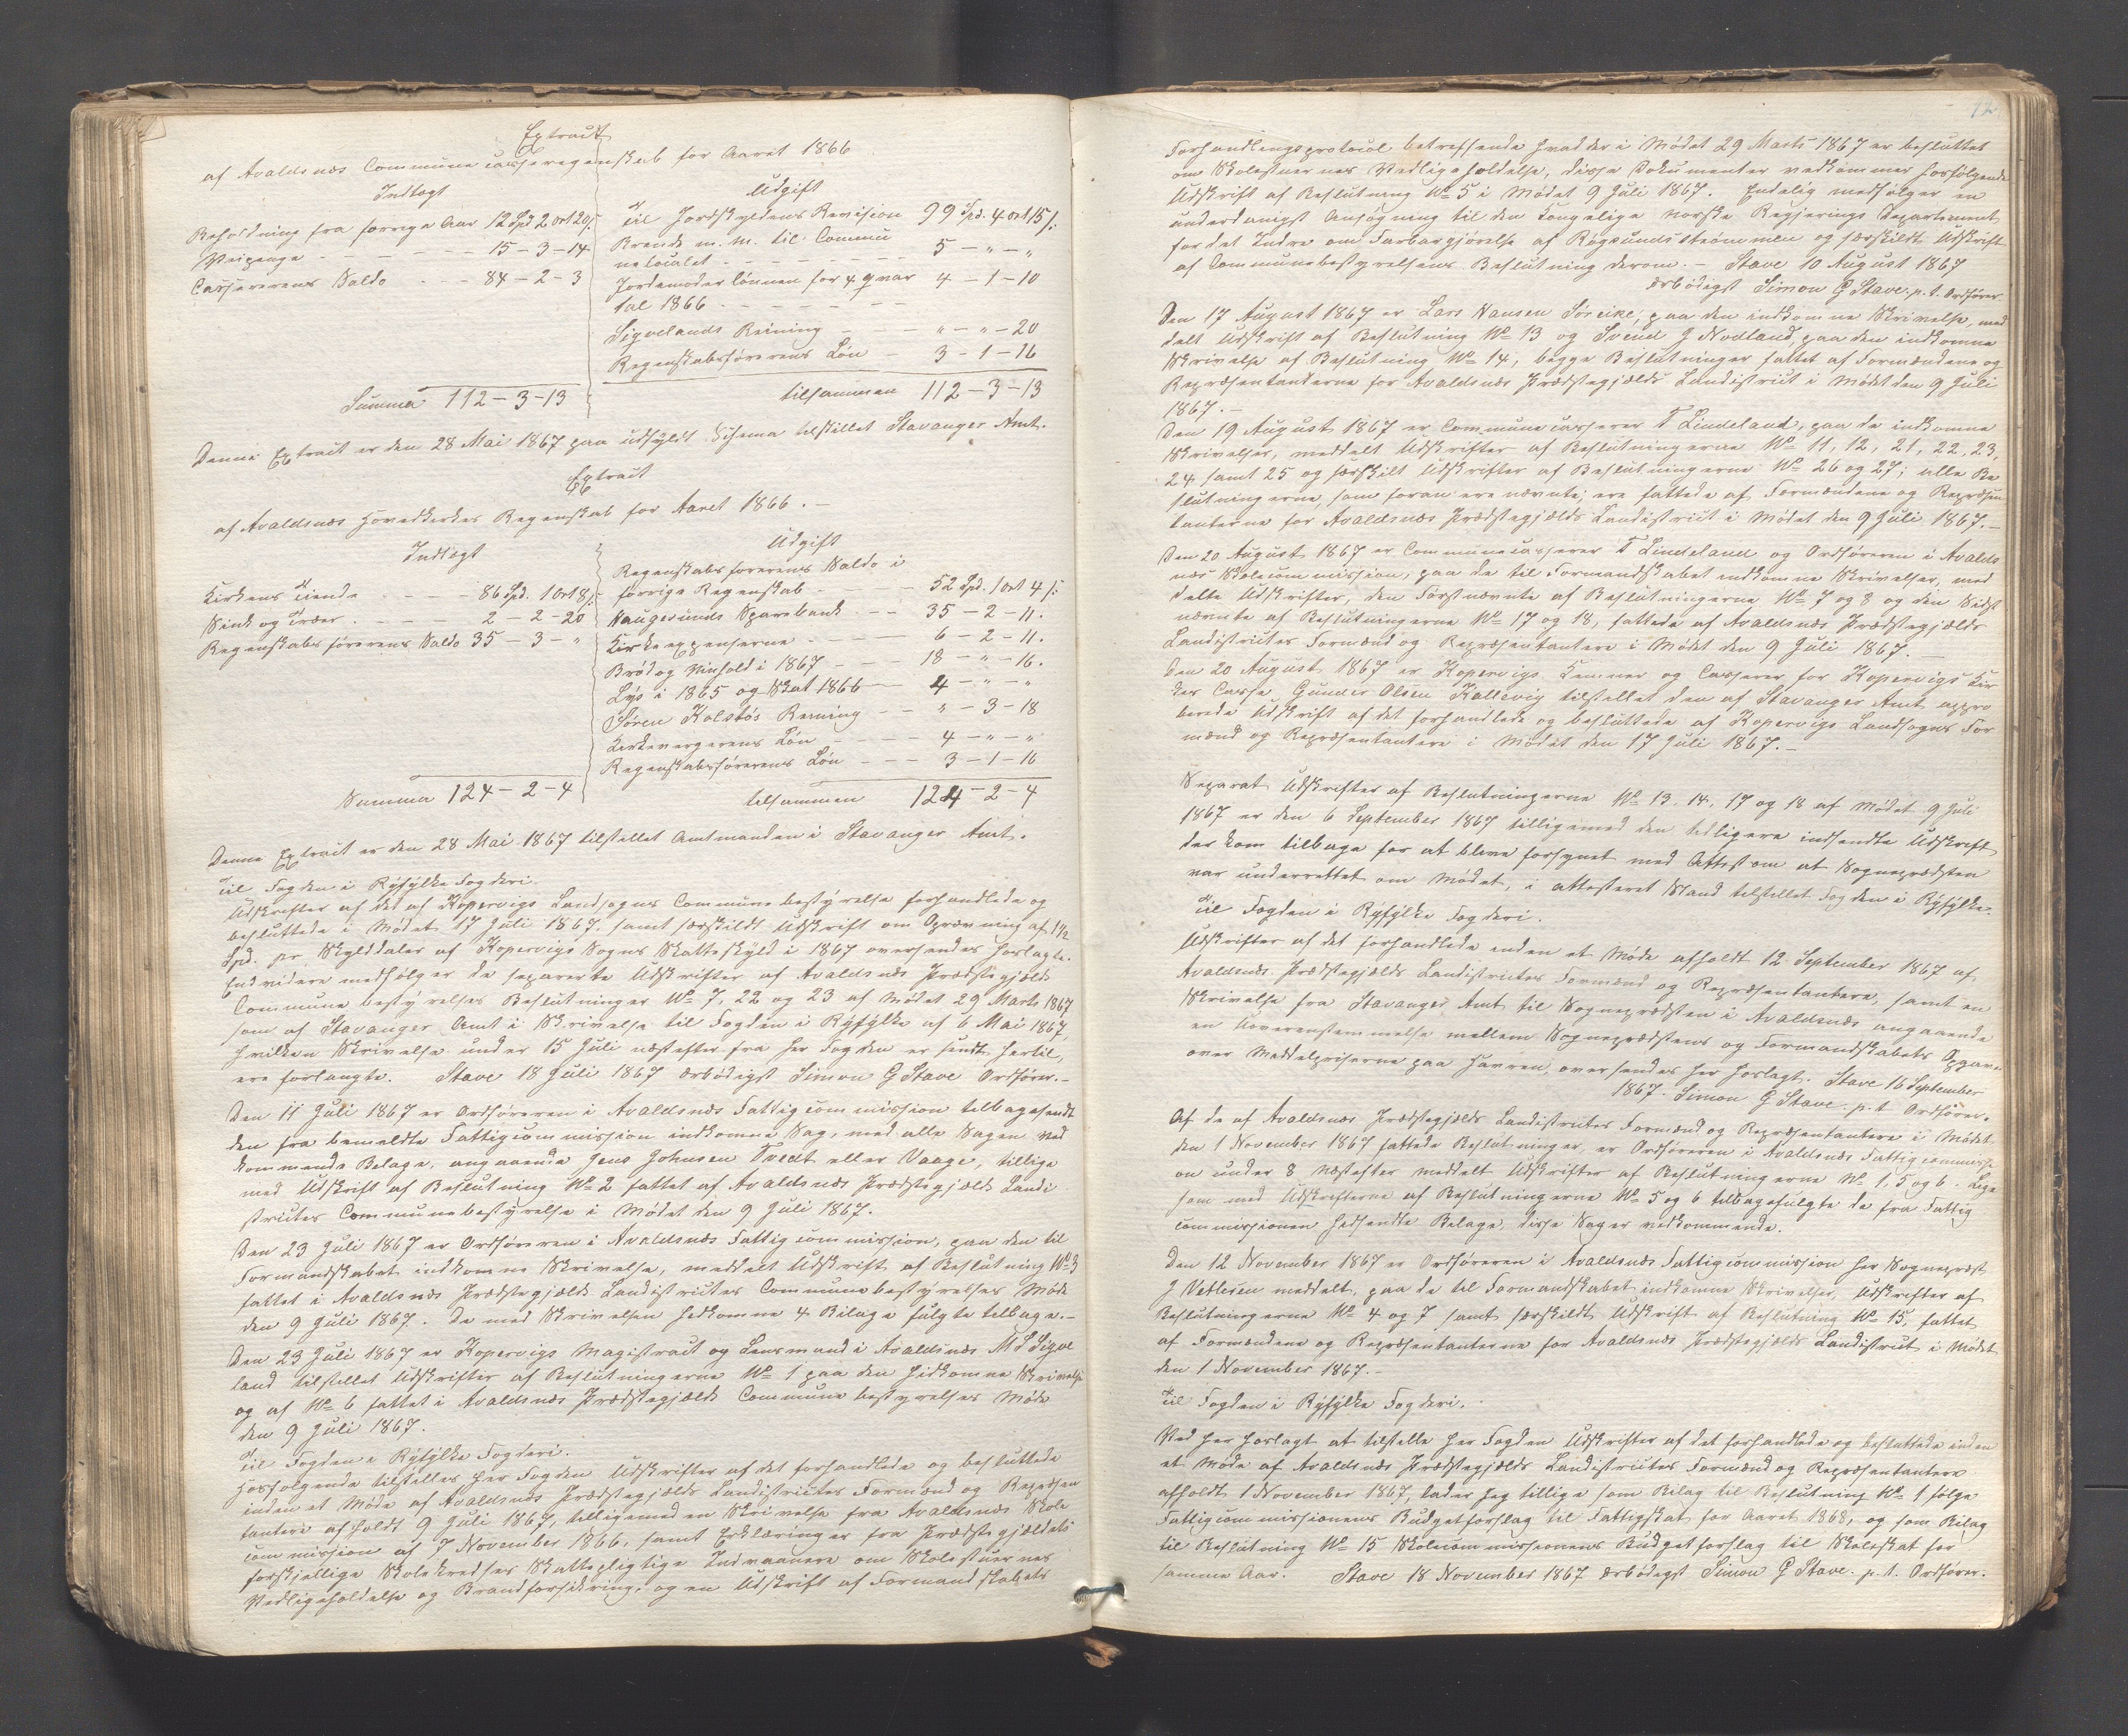 Extract
af Avaldsnæs Communecasseregnskab for Aaret 1866
Indtægt
Beholdning fra forrige Aar 12 Spd 2 ort 20 s.
Veipenge - - - - - 15 - 3 - 14
Cassererens Saldo - - - 84 - 2 - 3
Summa 112 - 3 - 13
Udgift
Til Jordskyldens Revision 99 Spd. 4 ort 15 s:
Brænde m. m. til Commu
nelocalet - - - - - 5 - " - "
Jordemoderlønnen for 4 qvar
tal 1866 - - - - - 4 - 1 - 10
Sigvelands Reining - - - " - " - 20
Regenskabsførerens Løn - 3 - 1 - 16
tilsammen 112 - 3 - 13
Denne Extract er den 28 Mai 1867 paa udfyldt Schema tilstillet Stavanger Amt.
Extract
af Avaldsnæs Hovedkirkes Regenskab for Aaret 1866. -
Indtægt
Kirkens Tiende - - - - 86 Spd. 1 ort 8 s.
Vind og Træer. - - - - 2 - 2 - 20
Regenskabsførerens Saldo 35 - 3 - "
Summa 124 - 2 - 4
Udgift
Regenskabsførerens Saldo i
forrige Regenskab - - - 52 Spd. 1 ort 4 s:
Haugesunds Sparebank - - 35 - 2 - 11.
Kirkeexpenserne - - - - 6 - 2 - 11.
Brød og Vinhold i 1867 - - - 18 - " - 16.
Lys i 1865 og Skat 1866 - 4 - " - "
Søren Kolstøs Reining - - " - 3 - 18
Kirkevergerens Løn - - - - 4 - " - "
Regenskabsførerens Løn - - - 3 - 1 - 16
tilsammen 124 - 2 - 4
Denne Extract er den 28 Mai 1867 tilstillet Amtmanden i Stavanger Amt.
Til Fogden i Ryfylke Fogderi.
Udskrifter af det af Kopervigs Landsogns Communebestyrelse forhandlede og
besluttede i Mødet 17 Juli 1867. samt særskildt Udskrift om Oprævning af 1½
Spd. pr Skylddaler af Kopervigs Sogns Matteskyld i 1867 oversendes forlagte.
Endvidere medfølger de separerte Udskrifter af Avaldsnæs Præstegjelds
Communebestyrelses Beslutninger No 7, 22 og 23 af Mødet 29 Marts 1867
som af Stavanger Amt i Skrivelse til Fogden i Ryfylke af 6 Mai 1867,
hvilken Skrivelse under 15 Juli næstefter fra Hr Fogden er sendt hertil,
ere forlangte. Stave 18 Juli 1867 Ærbødigst Simon G Stave Ordfører. -
Den 11 Juli 1867 er Ordføreren i Avaldsnæs Fattigcommission tilbagesendt
den fra bemeldte Fattigcommission indkomne Sag, med alle Sagen ved
kommende Belage, angaaende Jens Johnsen Tvedt eller Vaage, tillige
med Udskrift af Beslutning No 2 fattet af Avaldsnæs Præstegjelds Landi
stricts Communebestyrelse i Mødet den 9 Juli 1867.
Den 23 Juli 1867 er Ordføreren i Avaldsnæs Fattigcommission, paa den til
Formandskabet indkomne Skrivelse, meddelt Udskrift af Beslutning No 3
fattet i Avaldsnæs Præstegjelds Landistrictes Communebestyrelses Møde
den 9 Juli 1867. De med Skrivelsen hidkomne 4 Bilage fulgte tilbage. -
Den 23 Juli 1867 er Kopervigs Magistract og Lensmand i Avaldsnæs M L Sigve
land tilstillet Udskrifter af Beslutningerne No 1 paa den hidkomne Skrivelse
og af No 6 fattet i Avaldsnæs Præstegjelds Communebestyrelses Møde
den 9 Juli 1867.
Til Fogden i Ryfylke Fogderi.
Hosfølgende tilstilles Hr Fogden Udskrifter af det forhandlede og besluttede
inden et Møde af Avaldsnæs Præstegjælds Landistrictes Formænd og Repræsen
tantere afholdt 9 Juli 1867, tilligemed en Skrivelse fra Avaldsnæs Skole
commission af 7 November 1866, samt Erklæringer fra Præstegjældets
forskjellige Skolekredses Skattepligtige Indvaanere om Skolestuernes
Vedligeholdelse og Brandforsikring, og en Udskrift af Formandskabets
12
Forhandlingsprotocol betreffende hvad der i Mødet 29 Marts 1867 er besluttet
om Skolestuernes Vedligeholdelse, disse Dokumenter vedkommer hosfølgende
Udskrift af Beslutning No 5 i Mødet 9 Juli 1867. Endelig medfølger en
underdanigst Ansøgning til den Kongelige norske Regjerings Departement
for det Indre om Farbargjørelse af Røgsundsstrømmen og særskildt Udskrift
af Communebestyrelsens Beslutning derom. - Stave 10 August 1867
Ærbødigst Simon G Stave. p. t. Ordfører
Den 17 August 1867 er Lars Hansen Søreike, paa den indkomne Skrivelse, med
delt Udskrift af Beslutning No 13 og Svend J Nodland, paa den indkomne
Skrivelse af Beslutning No 14, begge Beslutninger fattet af Formændene og
Repræsentanterne for Avaldsnæs Præstegjælds Landistrict i Mødet den 9 Juli
1867. -
Den 19 August 1867 er Communecasserer T Lindeland, paa de indkomne
Skrivelser, meddelt Udskrifter af Beslutningerne No 11, 12, 21, 22, 23,
24 samt 25 og særskilt Udskrifter af Beslutningerne No 26 og 27; alle Be
slutningerne, som foran ere nævnte; ere fattede af Formændene og Repræsen
tanterne for Avaldsnæs Præstegjælds Landistrict i Mødet den 9 Juli 1867. -
Den 20 August 1867 er Communecasserer T Lindeland og Ordføreren i Avalds
næs Skolecommission, paa de til Formandskabet indkomne Skrivelser, med
delte Udskrifter, den Førstnævnte af Beslutningerne No 7 og 8 og den Sidst
nævnte af Beslutningerne No 17 og 18, fattede af Avaldsnæs Præstegjælds
Landistrictes Formænd og Repræsentantere i Mødet den 9 Juli 1867. -
Den 20 August 1867 er Kopervigs Kemner og Casserer for Kopervigs Kir
kes Casse Gunder Olsen Kallevig tilstillet den af Stavanger Amt appro
berede Udskrift af det forhandlede og besluttede af Kopervigs Landsogns For
mænd og Repræsentantere i Mødet den 17 Juli 1867. -
Separat Udskrifter af Beslutningerne No 13. 14, 17 og 18 af Mødet 9 Juli
1867 er den 6 September 1867 tilligemed den tidligere indsendte Udskrift
der kom tilbage for at blive forsynet med Attest om at Sognepræsten
var underrettet om Mødet, i attesteret Stand tilstillet Fogden i Ryfylke.
Til Fogden i Ryfylke Fogderi.
Udskrifter af det forhandlede inden et Møde afholdt 12 September 1867 af
Avaldsnæs Præstegjælds Landistrictes Formænd og Repræsentantere, samt en
Skrivelse fra Stavanger Amt til Sognepræsten i Avaldsnæs angaaende
en Uoverenstemmelse mellem Sognepræstens og Formandskabets Opgave
over Meddelpriserne paa Havren, oversendes her forlagt. Stave 16 September
1867. Simon G. Stave. p. t Ordfører.
Af de af Avaldsnæs Præstegjælds Landistrictes Formænd og Repræsentantere i Mødet
den 1 November 1867 fattede Beslutninger, er Ordføreren i Avaldsnæs Fattigcommissi
on under 8 næstefter meddelt Udskrifter af Beslutningerne No 1, 5 og 6. Lige
som med Udskrifterne af Beslutningerne No 5 og 6 tilbagefulgte de fra Fattig
commissionen hidsendte Belage, disse Sager vedkommende.
Den 12 November 1867 er Ordføreren i Avaldsnæs Fattigcommission Hr Sognepræst
J Vetlesen meddelt, paa de til Formandskabet indkomne Skrivelser, Udskrifter af
Beslutningerne No 4 og 7 samt særskildt Udskrift af Beslutning No 15, fattet
af Formændene og Repræsentanterne for Avaldsnæs Præstegjælds Landistrict i Mødet
den 1 November 1867. -
Til Fogden i Ryfylke Fogderi.
Ved her forlagt at tilstille Hr Fogden Udskrifter af det forhandlede og besluttede inden
et Møde af Avaldsnæs Præstegjælds Landistrictes Formænd og Repræsentantere
afholdt 1 November 1867, lader jeg tillige som Bilag til Beslutning No 1 følge
Fattigcommissionens Budgetforslag til Fattigskat for Aaret 1868, og som Bilag
til Beslutning No 15 Skolecommissionens Budgetforslag til Skoleskat for
samme Aar. Stave 18 November 1867 Ærbødigst Simon G Stave. p. t. Ordfører.